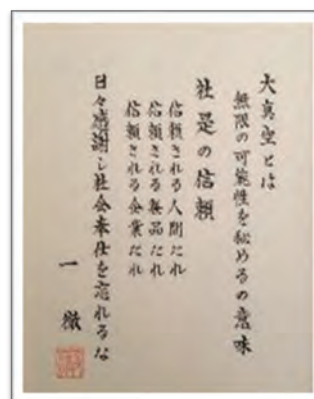 大真空とは
無限の可能性を秘めるの意味
社是の信頼
信頼される人間たれ
信頼される製品たれ
信頼される企業たれ
日々感謝し社会奉仕を忘れるな
一徹